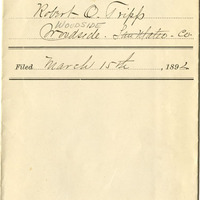 Robert O. Tripp
WOODSIDE
Woodside. San Mateo - Co
Filed March 15th, 1892